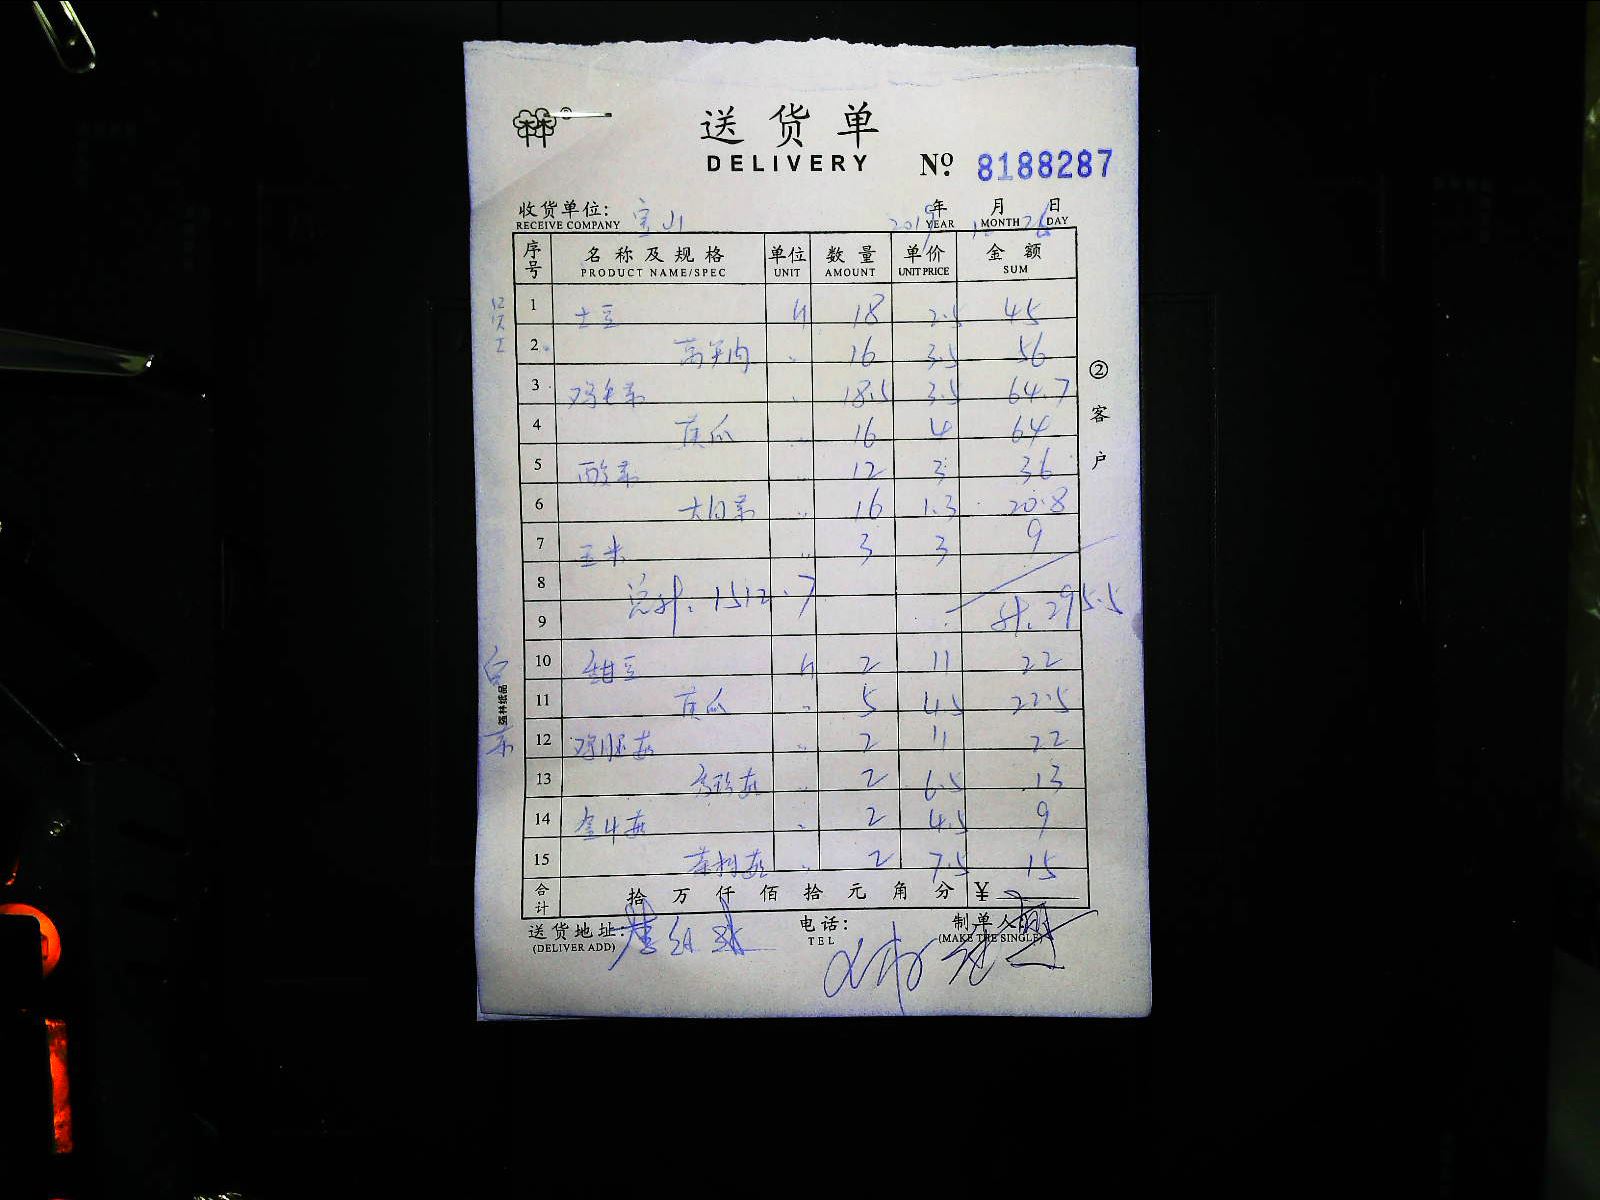 送货单
DELIVERY
Nº 8188287
收货单位: 宝山 2019年 月 26日
RECEIVE COMPANY YEAR MONTH DAY
序号 名称及规格 单位 数量 单价 金额
PRODUCT NAME/SPEC UNIT AMOUNT UNIT PRICE SUM
1 土豆 斤 18 2.5 45
2 16 3.5 56
3 鸡毛菜 18.5 3.5 64.7
4 黄瓜 16 4 64
5 酸菜 12 3 36
6 大白菜 16 1.3 20.8
7 玉米 3 3 9
8 总计: 1512.7
9 计: 295.5
10 甜豆 斤 2 11 22
11 黄瓜 5 4.5 22.5
12 鸡腿菇 2 11 22
13 秀珍菇 2 6.5 13
14 金针菇 2 4.5 9
15 茶树菇 2 7.5 15
合计 拾 万 仟 佰 拾 元 角 分 ¥
送货地址: 电话: 制单人
(DELIVER ADD) TEL (MAKE THE SINGLE)
②客户
强林纸品